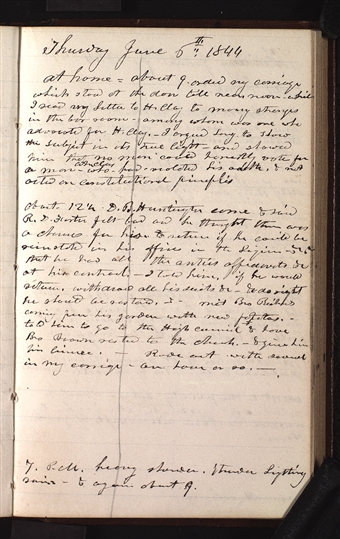 Thursday June 6th 1844
at home - about 9 ordered my carriage
which stood at the door till near noon - while
I read my Letter to H. Clay to many strangers
in the bar room - among whom was one who
advocate for H. Clay. I argued long to show
the Subject in its true light - and showed
him that no man could honestly vote for
a man - who had violated his oath, & not
acted on constitutional principles
about 12½ - D. B. Huntington came & said
R. D. Foster felt bad and he thought there was
a chance for him to return if he could be
reinstated in his office in the Legion - &c
that he had all the anties affidavits &c
at his control - I told him, if he would
return, withdraw all his suits &c - & do right
he should be restored,
met Bro
coming from his garden with new potatoes. -
told him to go to the High council & have
Bro Brown restored to the church - & give him
his license. - Rode out with several
in my carriage - an hour or so. -
7. P.M. heavy shower. thunder Lighting
rain - & again about 9.